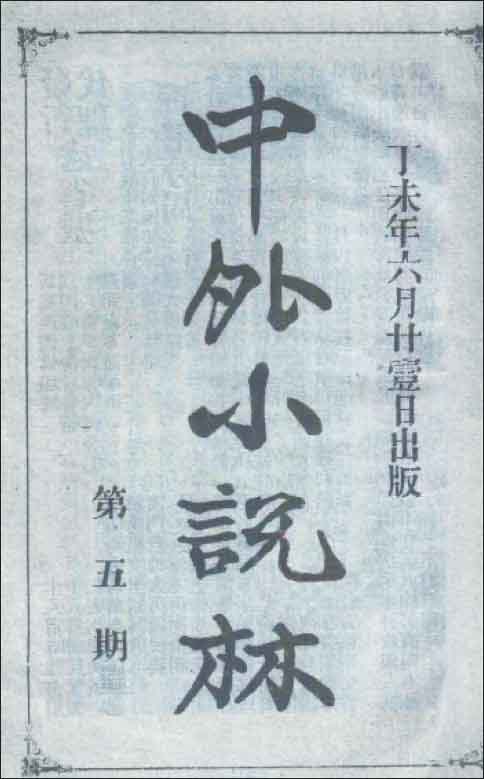 丁未年六月廿壹日出版
中外小説林
第五期